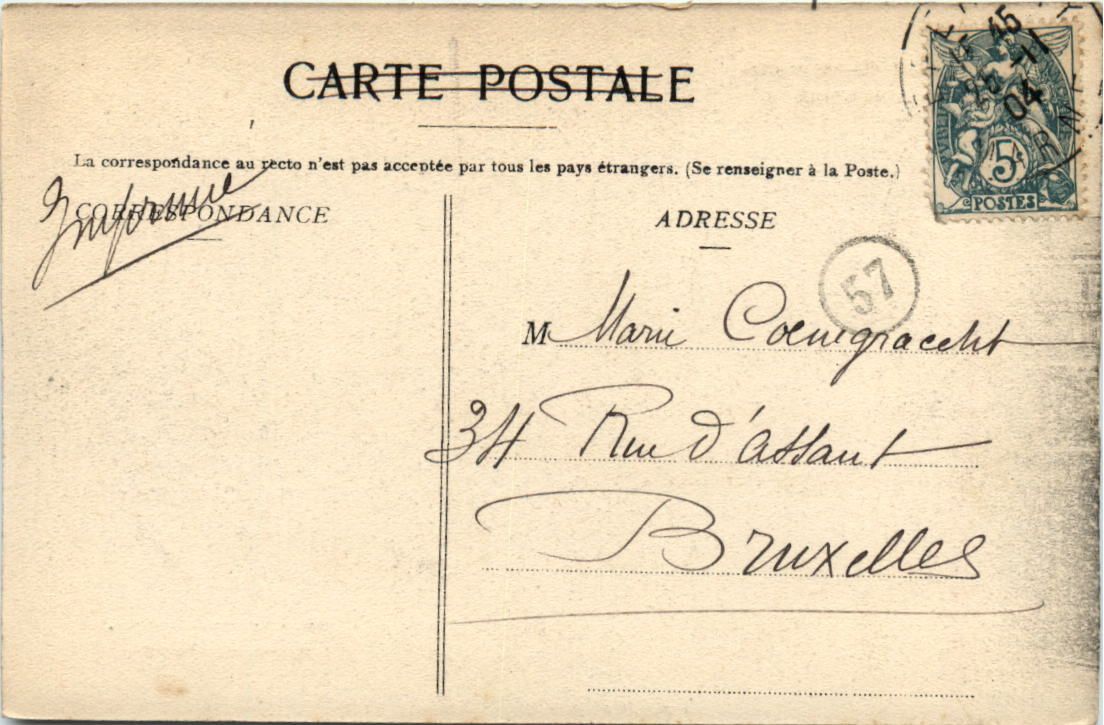 CARTE POSTALE
La correspondance au recto n'est pas acceptée par tous les pays étrangers. (Se renseigner à la Poste.)
Imprimé
CORRESPONDANCE
ADRESSE
57
M Marie Coenegracht
34 Rue d'Assaut
Bruxelles
15 45
11
04
5
POSTES